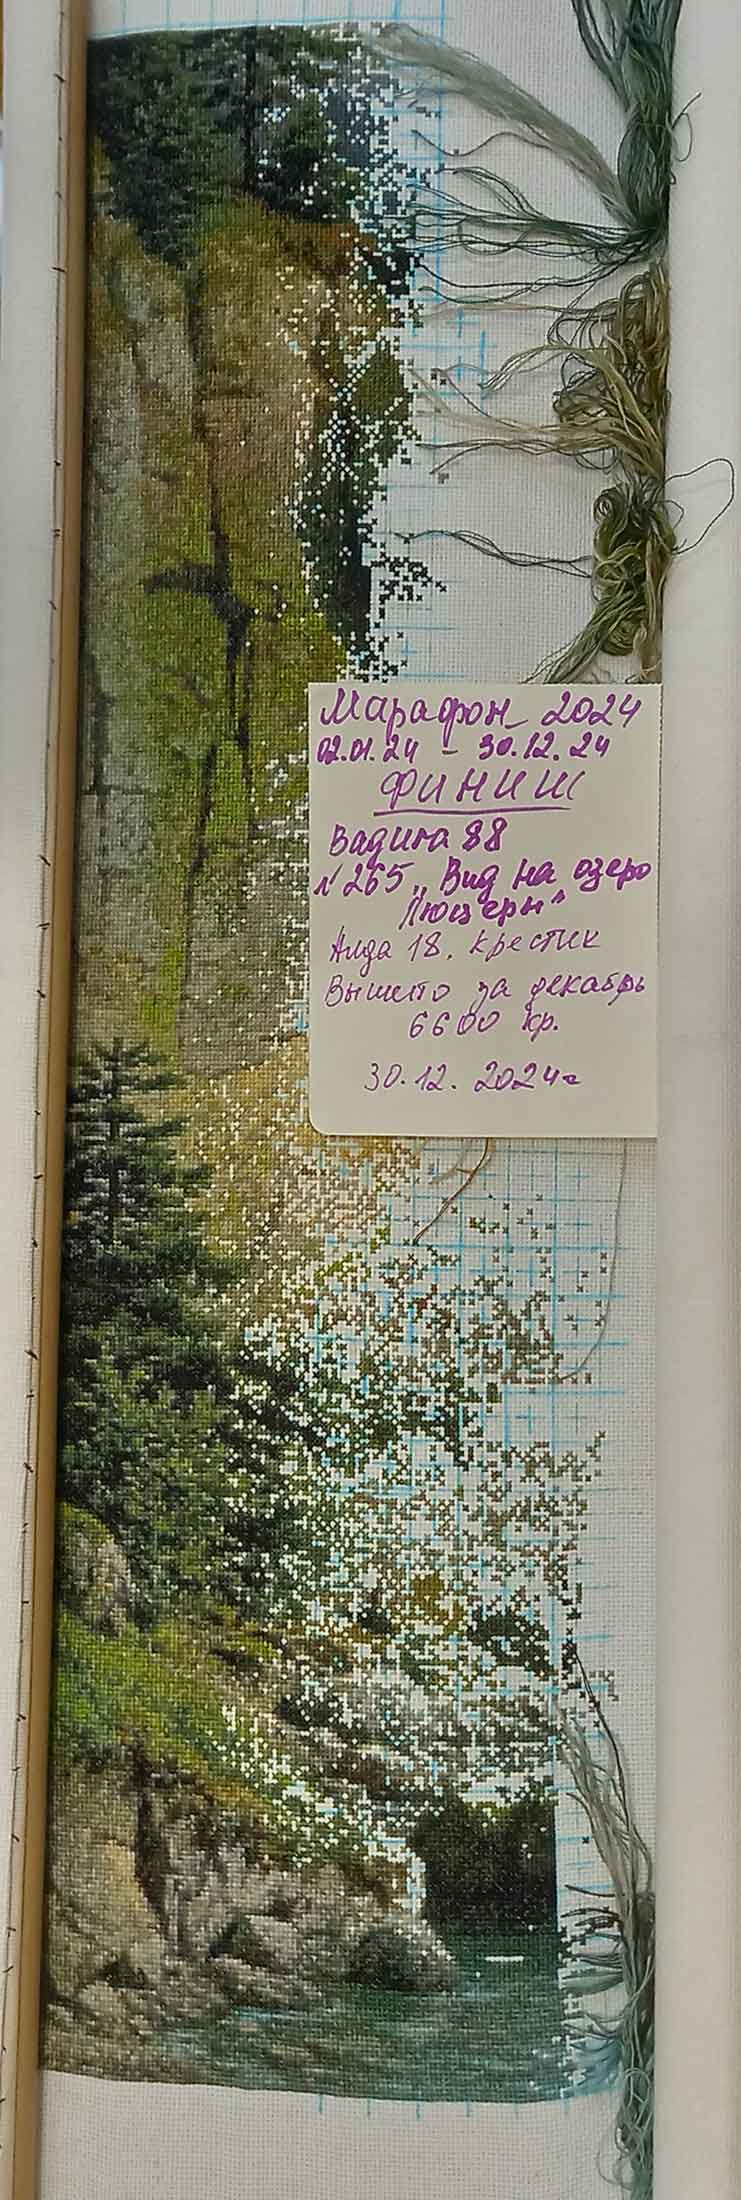 Марафон 2024
02.01.24 - 30.12.24
ФИНИШ
Вадича 88
№265 „Вид на озеро
Люцерн"
Аида 18, крестик
Вышито за декабрь
6600 кр.
30.12.2024г